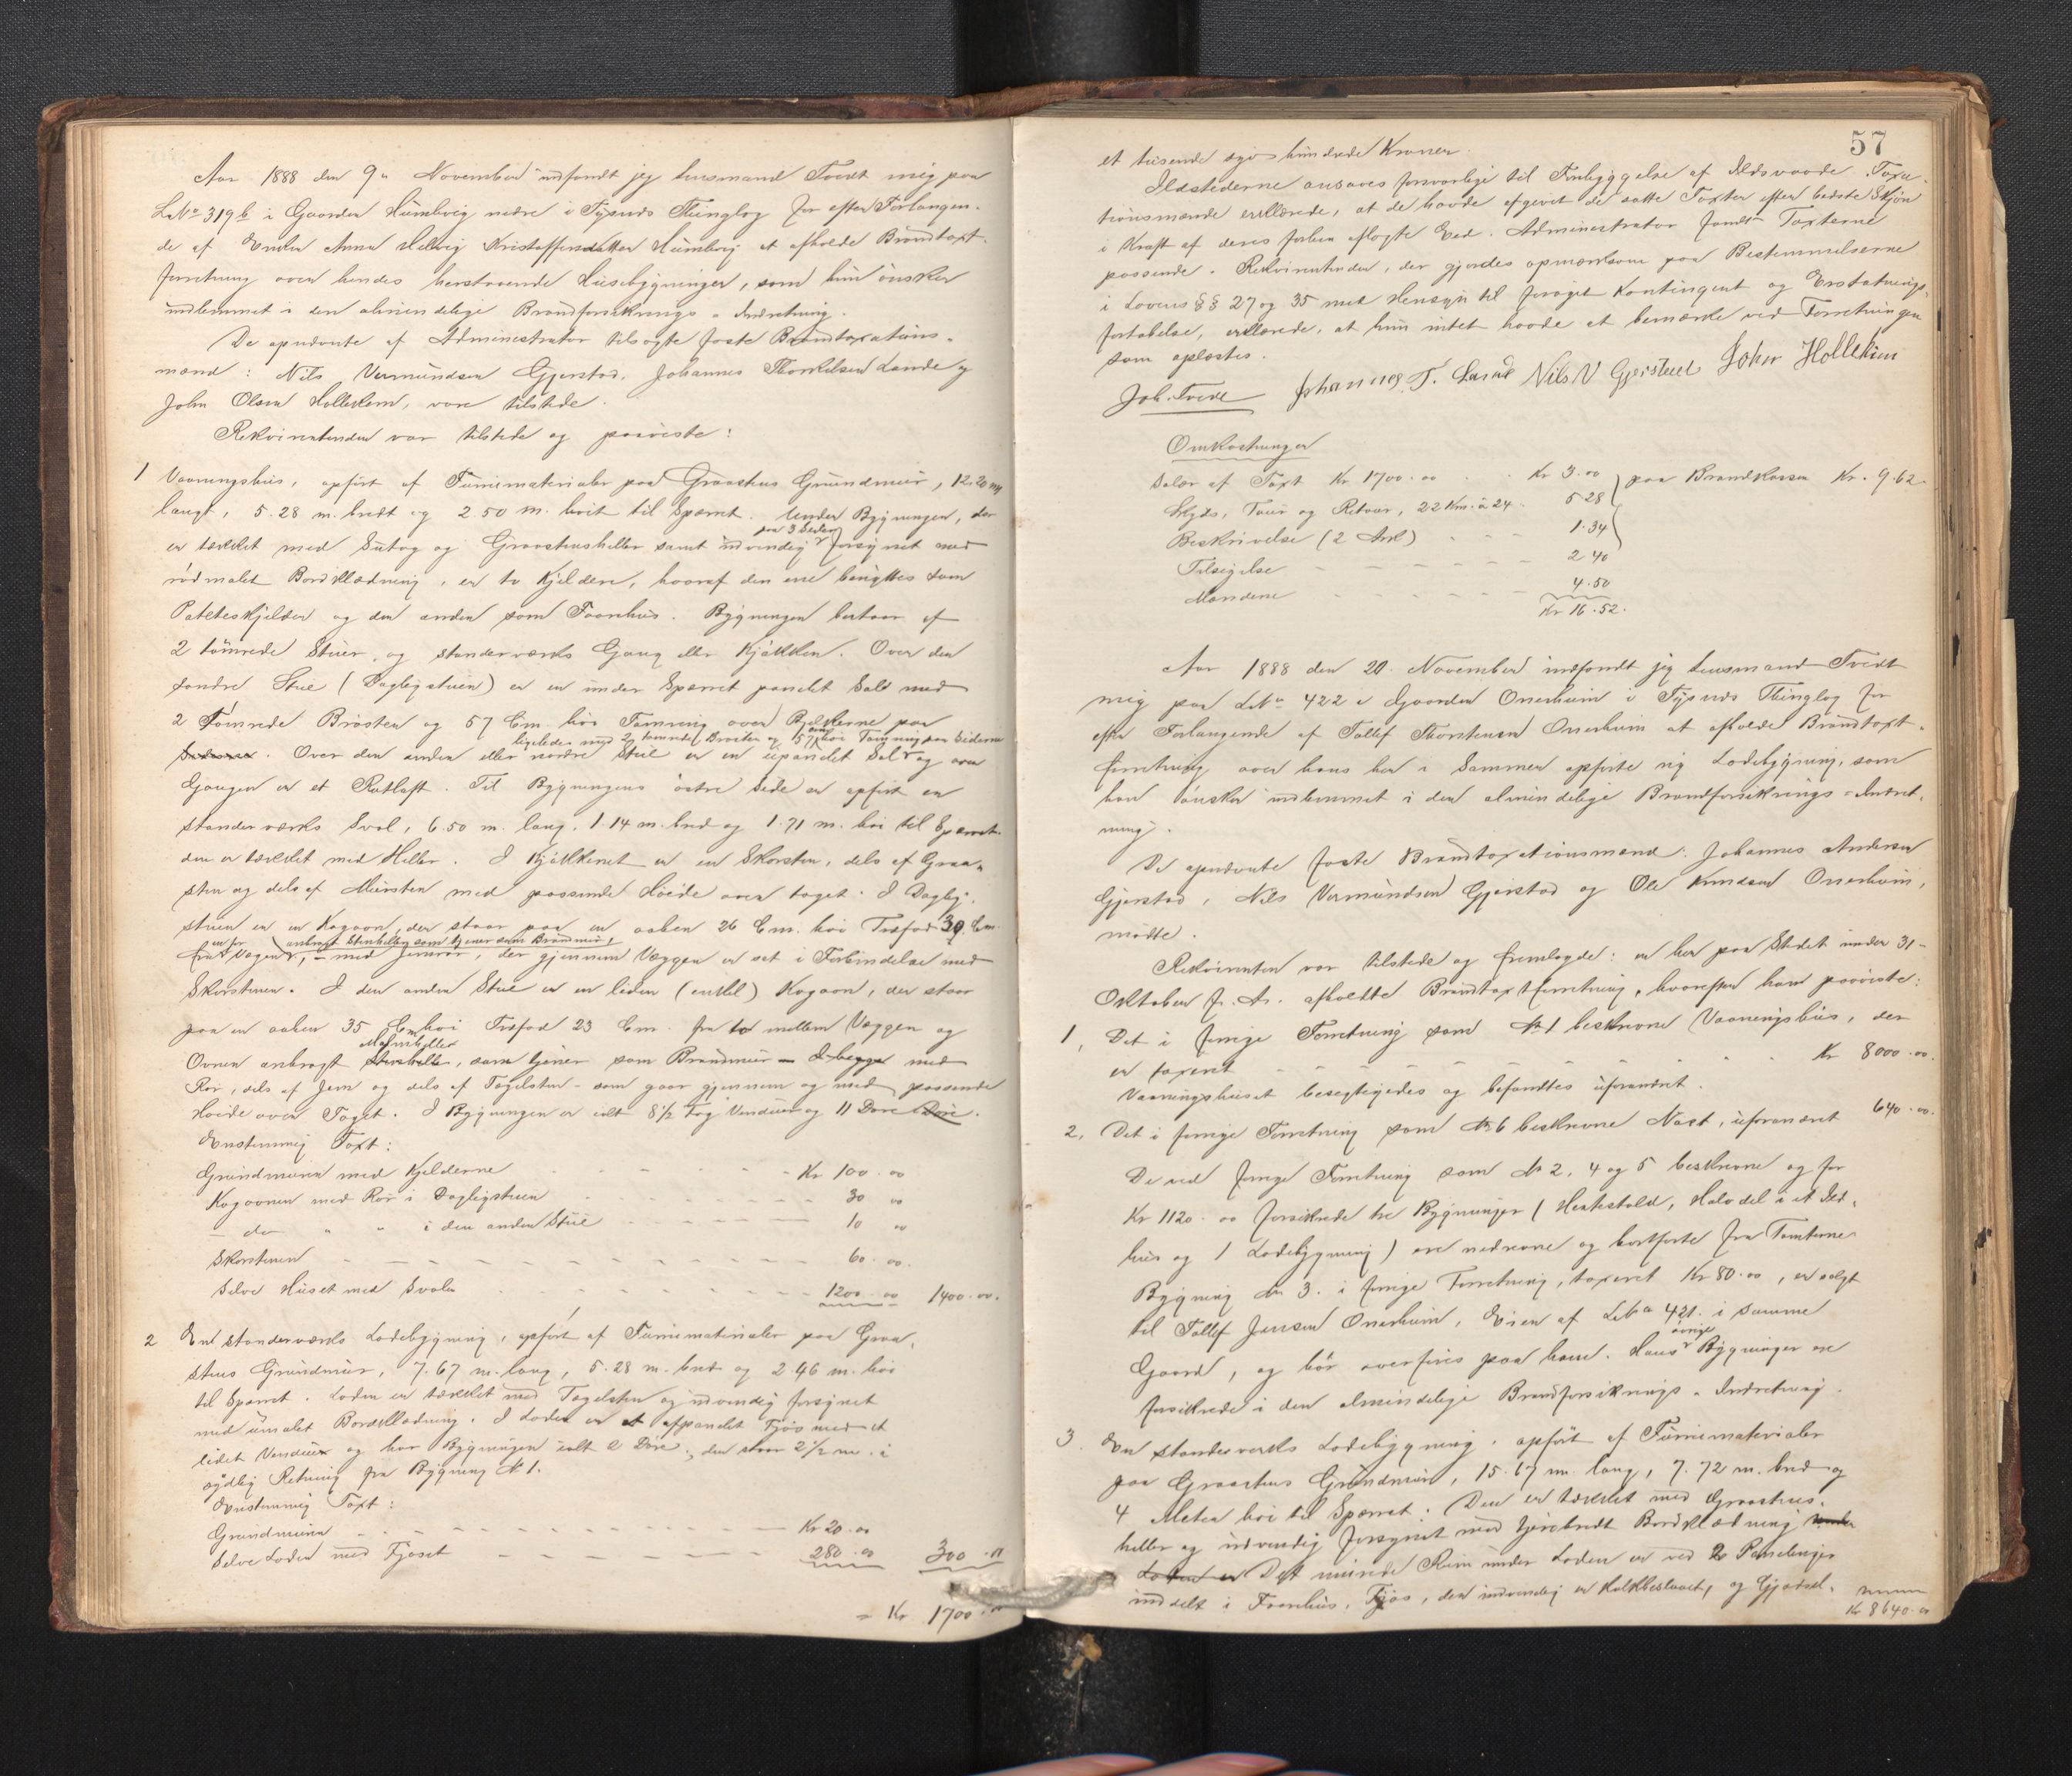 Aar 1888 den 9de November indfandt jeg Lensmand Tvedt mig paa
LNo 319b i Gaarden Humlevig nedre i Tysnæs Thinglag for efter Forlangen-
de af Enken Anna Helvig Kristoffersdatter Humlevig at afholde Brandtaxt-
forretning over hendes herstaaende Husebygninger, som hun ønsker
indlemmet i den almindelige Brandforsikrings-Indretning.
De opnævnte af Administrator tilsagte faste Brandtaxations-
mænd: Nils Vermundsen Gjerstad, Johannes Thorkelsen Lande og
John Olsen Hollekim, vare tilstede.
Rekvirentinden var tilstede og paaviste:
1 Vaaningshus, opført af Furumaterialer paa Graastens Grundmur, 12.20 m
langt, 5.28 m. bredt og 2.50 m. høit til Spærret. Under Bygningen, der
paa 3 Sider
er tækket med Sutag og Graastensheller samt udvendig forsynet med
rødmalet Bordklædning, er to Kjeldere, hvoraf den ene benyttes som
Poteteskjelder og den anden som Faarehus. Bygningen bestaar af
2 tømrede Stuer, og standerværks Gang eller Kjøkken. Over den
søndre Stue (Dagligstuen) er en under Spærret panelet Sal med
2 Tømrede Brøsten og 57 Cm. høi Tømring over Bjelkerne paa
ligeledes med 2 tømrede Brøster og 57 Cm høi Tømring paa Siderne
Siderne. Over den anden eller nordre Stue er en upanelet Sal og over
Gangen er et Rutloft. Til Bygningens østre Side er opført en
standerværks Sval, 6.50 m. lang, 1.14 m. bred og 1.71 m. høi til Spærret.
den er tækket med Heller. I Kjøkkenet er en Skorsten, dels af Graa-
sten og dels af Mursten med passende Høide over taget. I Daglig-
stuen er en Kogovn, der staar paa en aaben 26 Cm. høi Træfod 39 Cm.
en for anbragt Stenhelle som tjener som Brandmur,
fra Vægen, – med Jernrør, der gjennem Væggen er sat i Forbindelse med
Skorstenen. I den anden Stue er en liden (enkel) Kogovn, der staar
paa en aaben 35 Cm høi Træfod 23 Cm. fra en mellem Væggen og
Malmheller
Ovnen anbragt Stenhelle, som tjener som Brandmur – I begge med
Rør, dels af Jern og dels af Teglsten – som gaar gjennem og med passende
Høide over Taget. I Bygningen er ialt 8 1/2 Fag Vinduer og 11 Døre Døre.
Enstemmig Taxt:
Grundmuren med Kjelderne - - - Kr 100.00
Kogovnen med Rør i Dagligstuen - - - 30 00
– do " " i den anden Stue - - - 10 00
Skorstenen - - - 60.00.
Selve Huset med Svalen - - - 1200.00 1400.00.
2 En standerværks Ladebygning, opført af Furumaterialer paa Graa-
stens Grundmur, 7.67 m. lang, 5.28 m. bred og 2.46 m. høi
til Spærret. Laden er tækket med Teglsten og udvendig forsynet
med umalet Bordklædning. I Laden er et afpanelet Fjøs med et
lidet Vindue og har Bygningen ialt 2 Døre; den staar 2 1/2 m. i
sydlig Retning fra Bygning No 1.
Enstemmig Taxt:
Grundmuren - - - Kr 20.00
Selve Laden med Fjøset - - - 280.00 300.00
= Kr 1700.00
57
et tusende syv hundrede Kroner.
Ildstederne ansaaes forsvarlige til Forebyggelse af Ildsvaade. Taxa-
tionsmænd erklærede, at de havde afgivet de satte Taxter efter bedste Skjøn
i Kraft af deres forhen aflagte Eed. Administrator fandt Taxterne
passende. Rekvirentinden, der gjordes opmærksom paa Bestemmelserne
i Lovens §§ 27 og 35 med Hensyn til forøget Kontingent og Erstatnings-
fortabelse, erklærede, at hun intet havde at bemærke ved Forretningen
som oplæstes.
Joh. Tvedt Johannes T. Lande Nils V Gjerstad John Hollekim
Omkostninger
Salær af Taxt Kr 1700.00 - - Kr 3.00 paa Brandkassen Kr. 9.62.
Skyds, Tour og Retour, 22 Km. à 24 - 5.28
Beskrivelse (2 Ark) - - - 1.34
Tilsigelse - - - 2 40
Mændene - - - 4.50
Kr 16.52.
Aar 1888 den 20. November indfandt jeg Lensmand Tvedt
mig paa LNo 422 i Gaarden Onerheim i Tysnæs Thinglag for
efter Forlangende af Tollef Thorstensen Onerheim at afholde Brandtaxt-
forretning over hans her i Sommer opførte ny Ladebygning, som
han ønsker indlemmet i den almindelige Brandforsikrings-Indret-
ning.
De opnævnte faste Brandtaxationsmænd: Johannes Andersen
Gjerstad, Nils Vermundsen Gjerstad og Ole Knudsen Onerheim,
mødte.
Rekvirenten var tilstede og fremlagde: en her paa Stedet under 31-
Oktober f. A. afholdte Brandtaxtforretning, hvorefter han paaviste:
1, Det i forrige Forretning som No 1 beskrevne Vaaningshus, der
er taxeret - - - Kr 8000.00.
Vaaningshuset besigtigedes og befandtes uforandret.
2. Det i forrige Forretning som No 6 beskrevne Nøst, uforandret 640.00.
De ved forrige Forretning som No 2, 4 og 5 beskrevne og for
Kr 1120.00 forsikrede tre Bygninger (Hestestald, Halvdel i et Ild-
hus og 1 Ladebygning) ere nedrevne og bortførte fra Tomterne
Bygning No 3. i forrige Forretning, taxeret Kr 80.00, er solgt
til Tollef Jansen Onerheim, Eier af LNo 421. i samme
øvrige
Gaard, og bør overføres paa ham. Hans Bygninger ere
forsikrede i den almindelige Brandforsikrings-Indretning.
3. En standerværks Ladebygning, opført af Furumaterialer
paa Graastens Grundmur, 15.67 m. lang, 7.72 m. bred og
4 Meter høi til Spærret. Den er tækket med Graastens-
heller og udvendig forsynet med tjærebredt Bordklædning under
Laden er Det murede Rum under Laden er ved 2 Panelinger
inddelt i Faarehus, Fjøs, der indvendig er Kalkbeslaaet, og Gjødsel-
Kr 8640.00